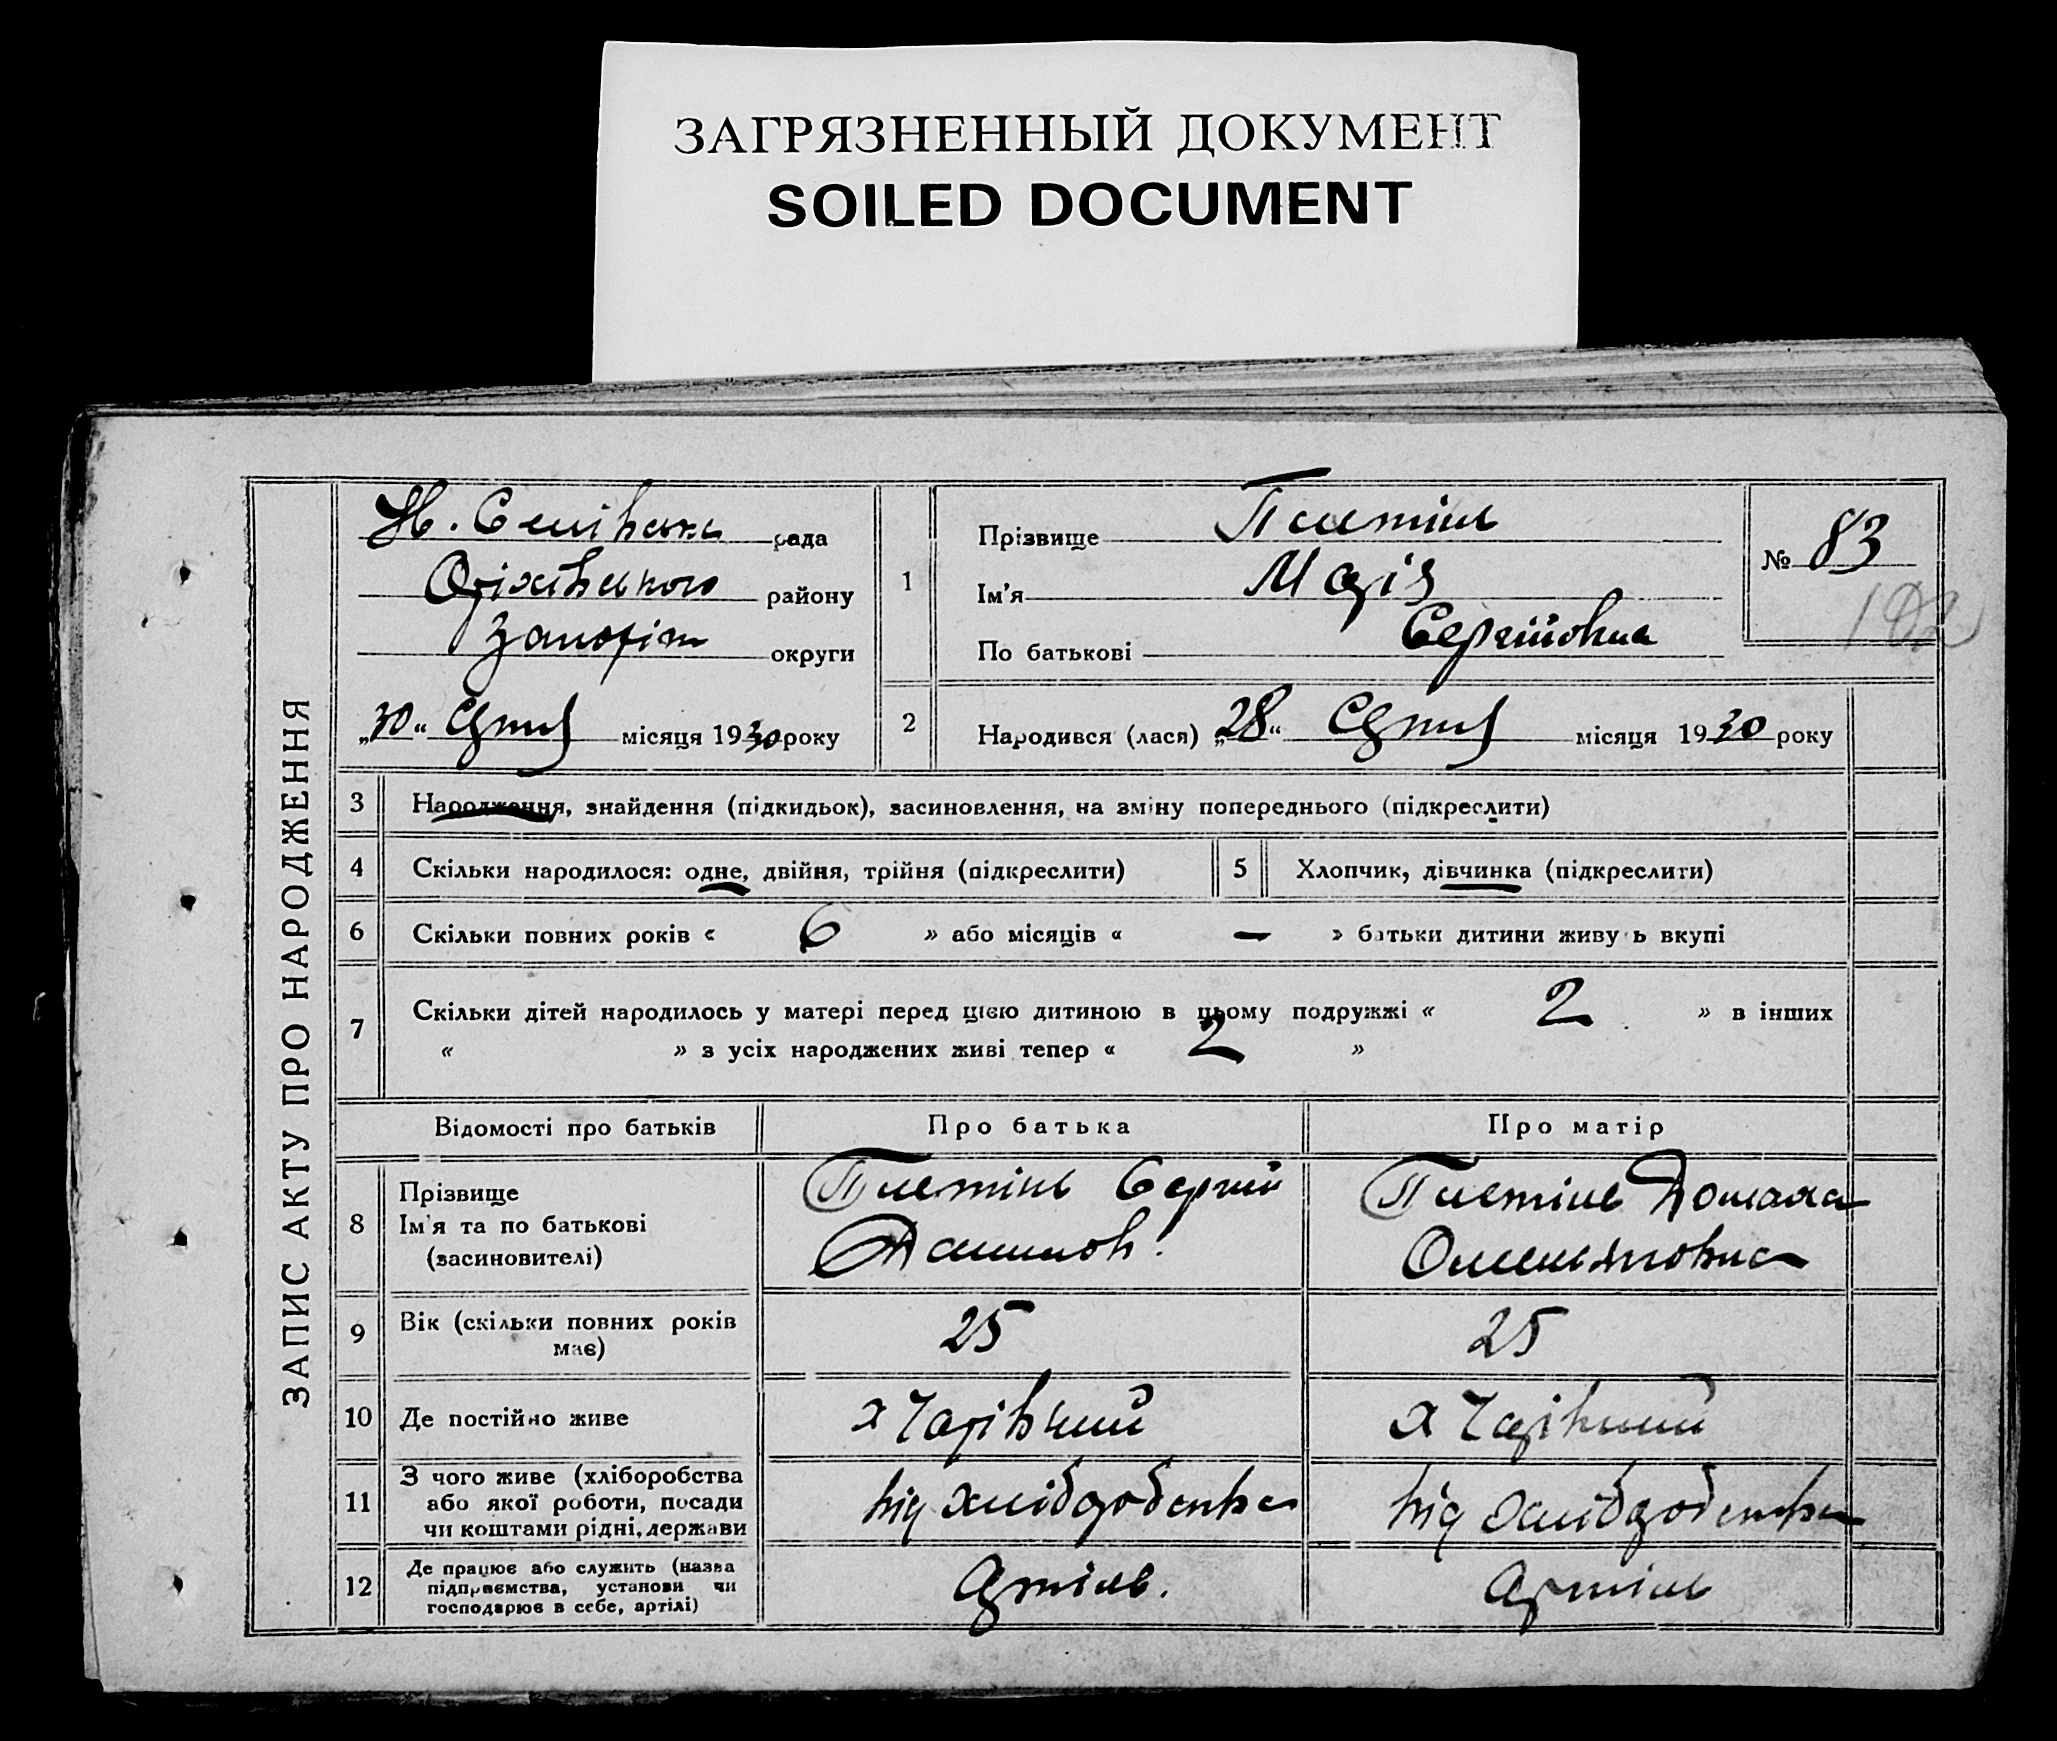 ЗАГРЯЗНЕННЫЙ ДОКУМЕНТ
SOILED DOCUMENT
ЗАПИС АКТУ ПРО НАРОДЖЕННЯ
рада
Оріхівського району
Запоріж округи
„30“ Серпня місяця 1930 року
1
Прізвище Плетінь
Ім'я Марія
По батькові Сергіївна
№ 83
102
2
Народився (лася) „28“ Серпня місяця 1930 року
3 Народження, знайдення (підкидьок), засиновлення, на зміну попереднього (підкреслити)
4 Скільки народилося: одне, двійня, трійня (підкреслити)
5 Хлопчик, дівчинка (підкреслити)
6 Скільки повних років « 6 » або місяців « — » батьки дитини живуть вкупі
7 Скільки дітей народилось у матері перед цією дитиною в цьому подружжі « 2 » в інших
« » з усіх народжених живі тепер « 2 »
Відомості про батьків Про батька Про матір
8 Прізвище
Ім'я та по батькові
(засновителі)
Плетінь Сергій
Данилов.
Плетінь Домаха
Омеляновна
9 Вік (скільки повних років
має)
25 25
10 Де постійно живе х Чарівний х Чарівний
11 З чого живе (хліборобства
або якої роботи, посади
чи коштами рідні, держави
від хліборобства від хліборобства
12 Де працює або служить (назва
підприємства, установи чи
господарює в себе, артілі)
Артіль. Артіль